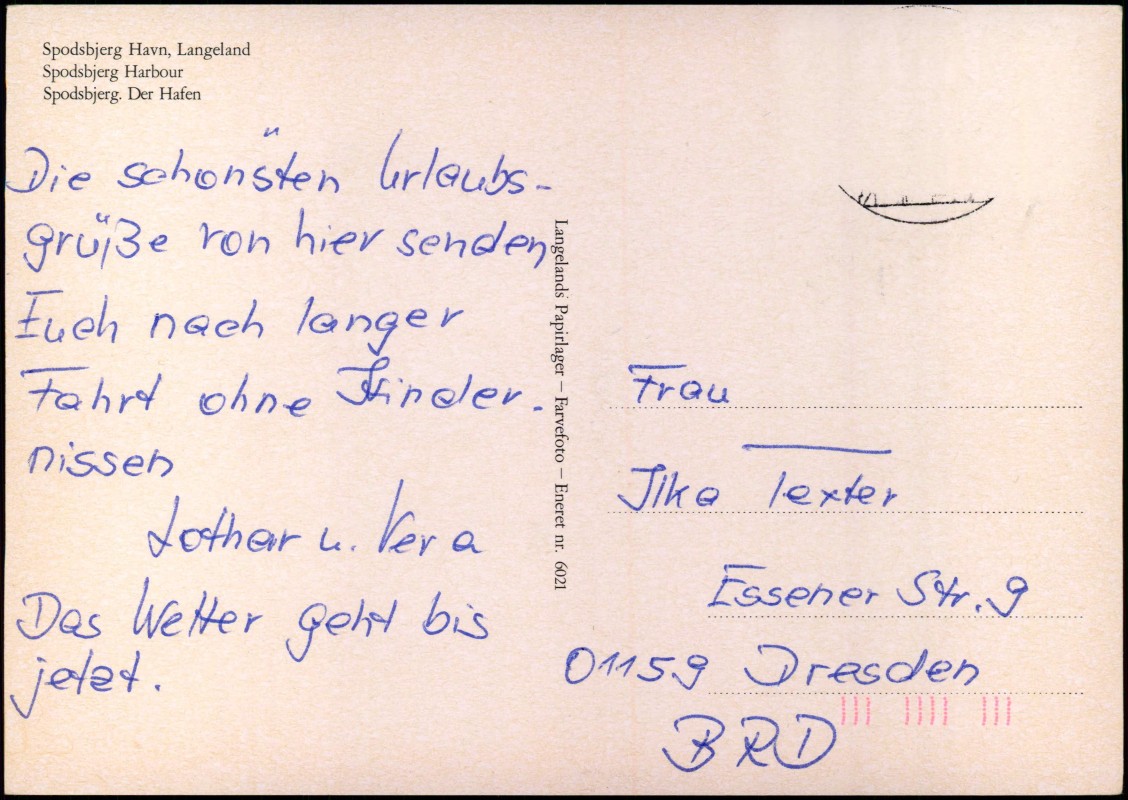 Spodsbjerg Havn, Langeland
Spodsbjerg Harbour
Spodsbjerg. Der Hafen
Die schönsten Urlaubs-
grüße von hier senden
Euch nach langer
Fahrt ohne Hinder-
nissen
Lothar u. Vera
Das Wetter geht bis
jetzt.
Langelands Papirlager – Farvefoto – Eneret nr. 6021
Frau
Ilka Texter
Essener Str. 9
01159 Dresden
BRD